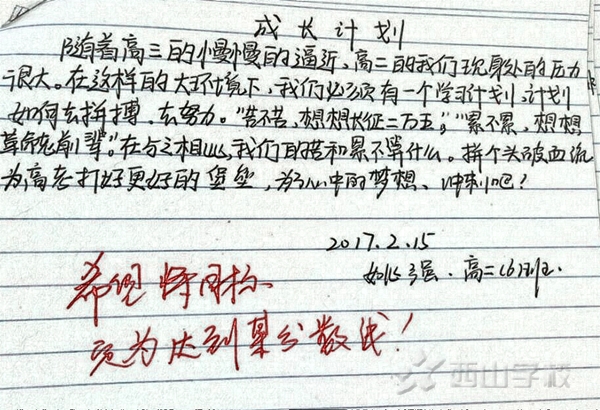 成长计划
随着高三的慢慢的逼近,高二的我们现身处的压力
很大。在这样的大环境下,我们必须有一个学习计划,计划
如何去拼搏、去努力。“苦不苦,想想长征二万五”,“累不累,想想
革命老前辈”。在与之相比,我们的苦和累不算什么。拼个头破血流
为高考打好更好的堡垒,为了心中的梦想、冲刺吧!
2017.2.15
强.高二(6)班.
希望将目标
为达到某分数线!
西山学校